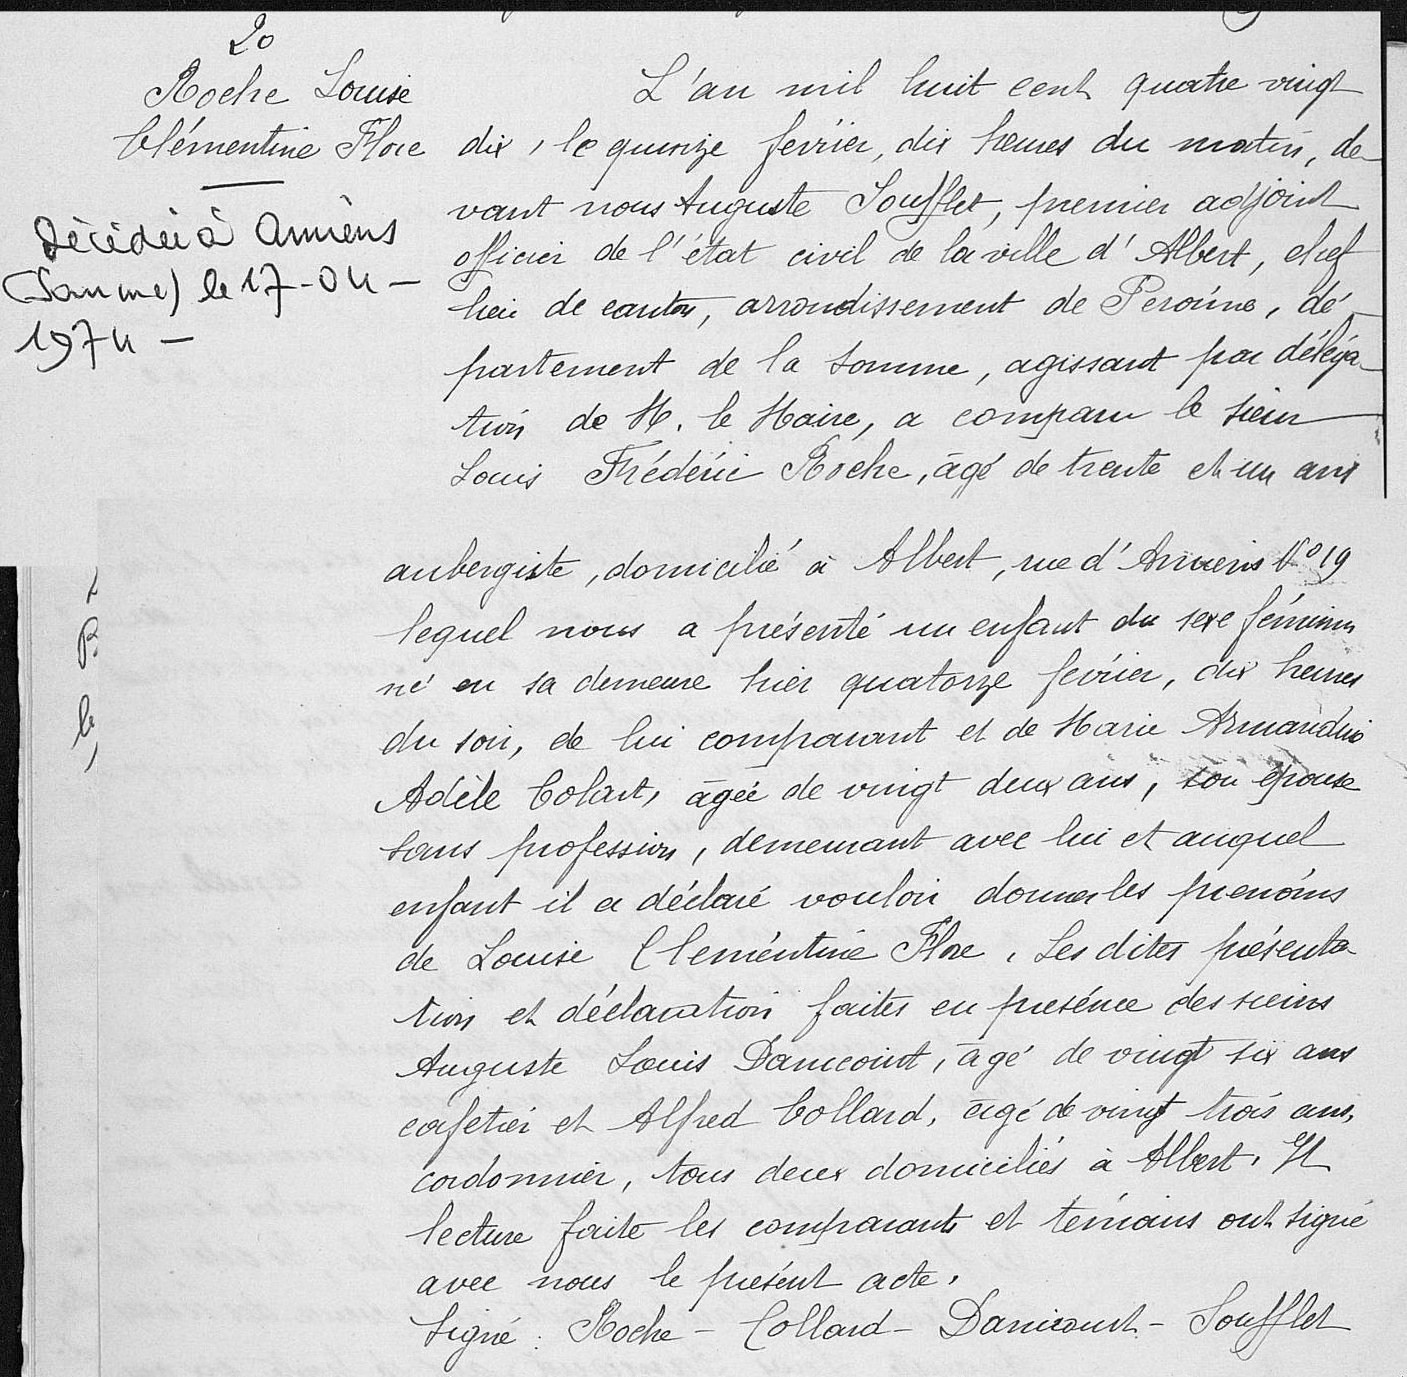 20
Roche Louise
Clémentine Flore
Décédée à Amiens
(Somme) le 17-04-
1974 -
L'an mil huit cent quatre vingt
dix, le quinze février, dix heures du matin, de-
vant nous Auguste Soufflet, premier adjoint
officier de l'état civil de la ville d'Albert, chef
lieu de canton, arrondissement de Peronne, dé-
partement de la Somme, agissant par déléga-
tion de M. le Maire, a comparu le sieur
Louis Frédéric Roche, âgé de trente et un ans
aubergiste, domicilié à Albert, rue d'Amiens No 19
lequel nous a présenté un enfant du sexe féminin
né en sa demeure hier quatorze février, dix heures
du soir, de lui comparant et de Marie Armandine
Adèle Colart, âgée de vingt deux ans, son épouse
sans profession, demeurant avec lui et auquel
enfant il a déclaré vouloir donner les prénoms
de Louise Clémentine Flore. Les dites présenta-
tion et déclaration faites en présence des sieurs
Auguste Louis Danicourt, âgé de vingt six ans
cafetier et Alfred Collard, âgé de vingt trois ans,
cordonnier, tous deux domiciliés à Albert. Et
lecture faite les comparants et témoins ont signé
avec nous le présent acte.
Signé : Roche - Collard - Danicourt - Soufflet